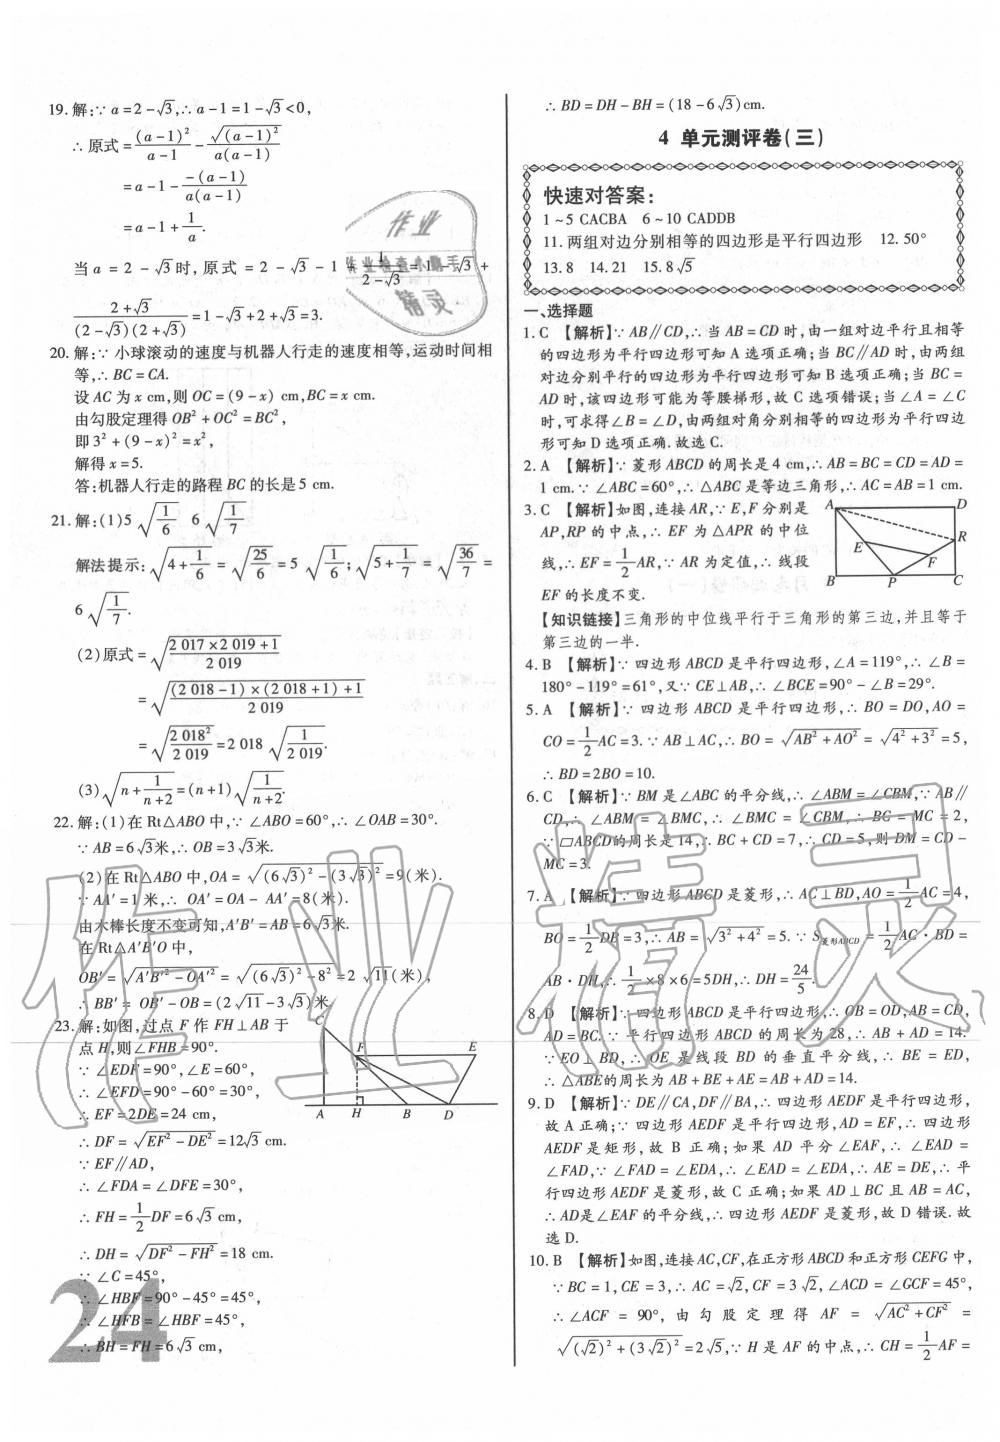 19.解:∵a=2-√3,∴a-1=1-√3<0,
∴原式=(a-1)²/(a-1)-√(a-1)²/a(a-1)
=a-1--(a-1)/a(a-1)
=a-1+1/a.
当a=2-√3时,原式=2-√3-1+1/(2-√3)=1-√3+
(2+√3)/(2-√3)(2+√3)=1-√3+2+√3=3.
20.解:∵小球滚动的速度与机器人行走的速度相等,运动时间相
等,∴BC=CA.
设AC为x cm,则OC=(9-x) cm,BC=x cm.
由勾股定理得OB²+OC²=BC²,
即3²+(9-x)²=x²,
解得x=5.
答:机器人行走的路程BC的长是5 cm.
21.解:(1)5√(1/6)  6√(1/7)
解法提示:√(4+1/6)=√(25/6)=5√(1/6);√(5+1/7)=√(36/7)=
6√(1/7).
(2)原式=√((2 017×2 019+1)/2 019)
=√(((2 018-1)×(2 018+1)+1)/2 019)
=√(2 018²/2 019)=2 018√(1/2 019).
(3)√(n+1/(n+2))=(n+1)√(1/(n+2)).
22.解:(1)在Rt△ABO中,∵∠ABO=60°,∴∠OAB=30°.
∵AB=6√3米,∴OB=3√3米.
(2)在Rt△ABO中,OA=√((6√3)²-(3√3)²)=9(米).
∵AA′=1米,∴OA′=OA-AA′=8(米).
由木棒长度不变可知,A′B′=AB=6√3米.
在Rt△A′B′O中,
OB′=√(A′B′²-OA′²)=√((6√3)²-8²)=2√11(米),
∴BB′=OB′-OB=(2√11-3√3)米.
23.解:如图,过点F作FH⊥AB于
点H,则∠FHB=90°.
∵∠EDF=90°,∠E=60°,
∴∠EFD=90°-60°=30°,
∴EF=2DE=24 cm,
∴DF=√(EF²-DE²)=12√3 cm.
∵EF∥AD,
∴∠FDA=∠DFE=30°,
∴FH=1/2DF=6√3 cm,
∴DH=√(DF²-FH²)=18 cm.
∵∠C=45°,
∴∠HBF=90°-45°=45°,
∴∠HFB=∠HBF=45°,
∴BH=FH=6√3 cm,
C F E A H B D
24
∴BD=DH-BH=(18-6√3)cm.
4 单元测评卷(三)
快速对答案:
1~5 CACBA  6~10 CADDB
11.两组对边分别相等的四边形是平行四边形  12.50°
13.8  14.21  15.8√5
一、选择题
1.C 【解析】∵AB∥CD,∴当AB=CD时,由一组对边平行且相等
的四边形为平行四边形可知A选项正确;当BC∥AD时,由两组
对边分别平行的四边形为平行四边形可知B选项正确;当BC=
AD时,该四边形可能为等腰梯形,故C选项错误;当∠A=∠C
时,可求得∠B=∠D,由两组对角分别相等的四边形为平行四边
形可知D选项正确.故选C.
2.A 【解析】∵菱形ABCD的周长是4 cm,∴AB=BC=CD=AD=
1 cm.∵∠ABC=60°,∴△ABC是等边三角形,∴AC=AB=1 cm.
3.C 【解析】如图,连接AR,∵E,F分别是
AP,RP的中点,∴EF为△APR的中位
线,∴EF=1/2AR,∵AR为定值,∴线段
EF的长度不变.
A D R E F B P C
【知识链接】三角形的中位线平行于三角形的第三边,并且等于
第三边的一半.
4.B 【解析】∵四边形ABCD是平行四边形,∠A=119°,∴∠B=
180°-119°=61°,又∵CE⊥AB,∴∠BCE=90°-∠B=29°.
5.A 【解析】∵四边形ABCD是平行四边形,∴BO=DO,AO=
CO=1/2AC=3.∵AB⊥AC,∴BO=√(AB²+AO²)=√(4²+3²)=5,
∴BD=2BO=10.
6.C 【解析】∵BM是∠ABC的平分线,∴∠ABM=∠CBM,∵AB∥
CD,∴∠ABM=∠BMC,∴∠BMC=∠CBM,∴BC=MC=2,
∵▱ABCD的周长是14,∴BC+CD=7,∴CD=5,则DM=CD-
MC=3.
7.A 【解析】∵四边形ABCD是菱形,∴AC⊥BD,AO=1/2AC=4,
BO=1/2DB=3,∴AB=√(3²+4²)=5.∵S菱形ABCD=1/2AC·BD=
AB·DH,∴1/2×8×6=5DH,∴DH=24/5.
8.D 【解析】∵四边形ABCD是平行四边形,∴OB=OD,AB=CD,
AD=BC.∵平行四边形ABCD的周长为28,∴AB+AD=14.
∵EO⊥BD,∴OE是线段BD的垂直平分线,∴BE=ED,
∴△ABE的周长为AB+BE+AE=AB+AD=14.
9.D 【解析】∵DE∥CA,DF∥BA,∴四边形AEDF是平行四边形,
故A正确;∵四边形AEDF是平行四边形,AD=EF,∴四边形
AEDF是矩形,故B正确;如果AD平分∠EAF,∴∠EAD=
∠FAD,∵∠FAD=∠EDA,∴∠EAD=∠EDA,∴AE=DE,∴平
行四边形AEDF是菱形,故C正确;如果AD⊥BC且AB=AC,
∴AD是∠EAF的平分线,∴四边形AEDF是菱形,故D错误.故
选D.
10.B 【解析】如图,连接AC,CF,在正方形ABCD和正方形CEFG中,
∵BC=1,CE=3,∴AC=√2,CF=3√2,∠ACD=∠GCF=45°,
∴∠ACF=90°,由勾股定理得AF=√(AC²+CF²)=
√((√2)²+(3√2)²)=2√5,∵H是AF的中点,∴CH=1/2AF=
作业精灵
作业
作业检查小助手
精灵